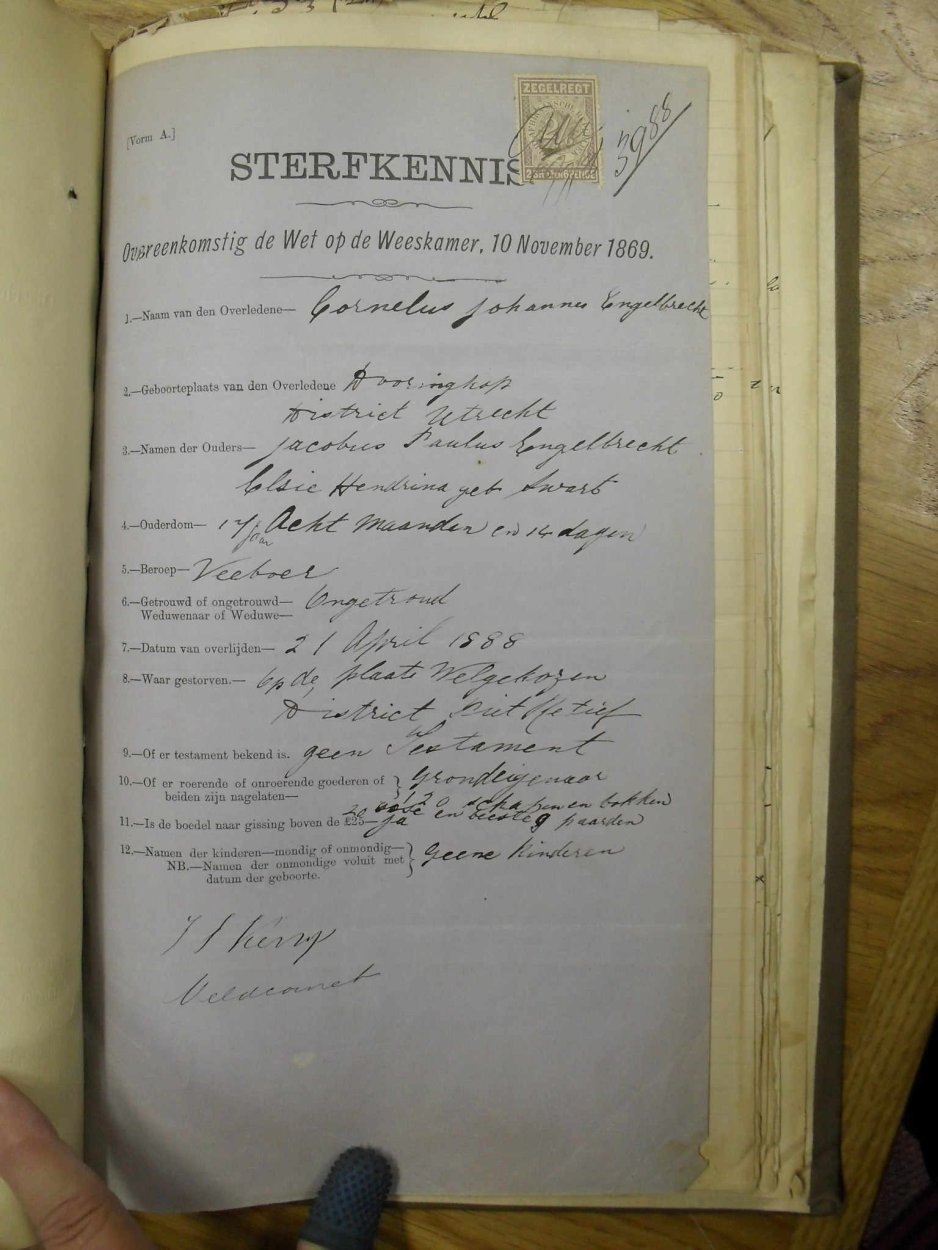 [Vorm A.]
ZEGELREGT
3988
STERFKENNIS
Overeenkomstig de Wet op de Weeskamer, 10 November 1869.
1.—Naam van den Overledene— Cornelus Johannes Engelbrecht
2.—Geboorteplaats van den Overledene Dooringkop
District Utrecht
3.—Namen der Ouders— Jacobus Paulus Engelbrecht
Elsie Hendrina geb Swart
4.—Ouderdom— 17 Jaar Acht maanden en 14 dagen
5.—Beroep— Veeboer
6.—Getrouwd of ongetrouwd— Ongetroud
Weduwenaar of Weduwe—
7.—Datum van overlijden— 21 April 1888
8.—Waar gestorven.— Op de plaats Welgekozen
District Piet Retief
9.—Of er testament bekend is. geen Testament
10.—Of er roerende of onroerende goederen of Grondeigenaar
beiden zijn nagelaten— schapen en bokken
20 en beeste 9 paarden
11.—Is de boedel naar gissing boven de £25— ja
12.—Namen der kinderen—mondig of onmondig— Geene Kinderen
NB.—Namen der onmondige voluit met
datum der geboorte.
Veldcornet